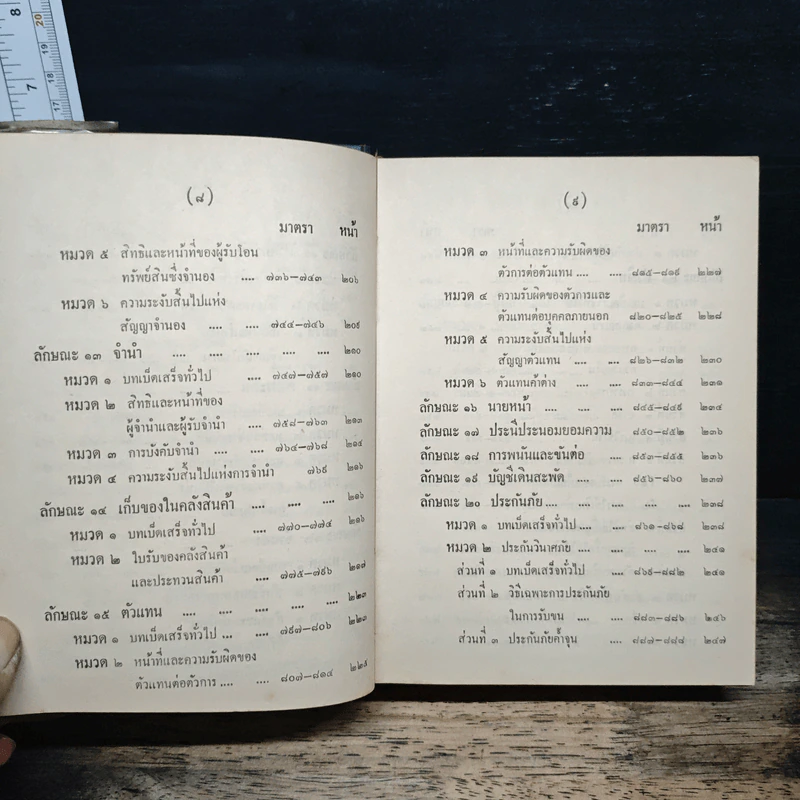 (๘)
มาตรา หน้า
หมวด ๕ สิทธิและหน้าที่ของผู้รับโอน
ทรัพย์สินซึ่งจำนอง .... ๗๓๖—๗๔๓ ๒๐๖
หมวด ๖ ความระงับสิ้นไปแห่ง
สัญญาจำนอง .... .... ๗๔๔—๗๔๖ ๒๐๙
ลักษณะ ๑๓ จำนำ .... .... .... .... .... ๒๑๐
หมวด ๑ บทเบ็ดเสร็จทั่วไป .... ๗๔๗—๗๕๗ ๒๑๐
หมวด ๒ สิทธิและหน้าที่ของ
ผู้จำนำและผู้รับจำนำ .... ๗๕๘—๗๖๓ ๒๑๓
หมวด ๓ การบังคับจำนำ .... ๗๖๔—๗๖๘ ๒๑๔
หมวด ๔ ความระงับสิ้นไปแห่งการจำนำ ๗๖๙ ๒๑๖
ลักษณะ ๑๔ เก็บของในคลังสินค้า .... .... .... ๒๑๖
หมวด ๑ บทเบ็ดเสร็จทั่วไป .... ๗๗๐—๗๗๔ ๒๑๖
หมวด ๒ ใบรับของคลังสินค้า
และประทวนสินค้า .... ๗๗๕—๗๙๖ ๒๑๗
ลักษณะ ๑๕ ตัวแทน .... .... .... .... .... ๒๒๓
หมวด ๑ บทเบ็ดเสร็จทั่วไป .... .... ๗๙๗—๘๐๖ ๒๒๓
หมวด ๒ หน้าที่และความรับผิดของ
ตัวแทนต่อตัวการ .... .... ๘๐๗—๘๑๔ ๒๒๕
(๙)
มาตรา หน้า
หมวด ๓ หน้าที่และความรับผิดของ
ตัวการต่อตัวแทน .... .... ๘๑๕—๘๑๙ ๒๒๗
หมวด ๔ ความรับผิดของตัวการและ
ตัวแทนต่อบุคคลภายนอก ๘๒๐—๘๒๕ ๒๒๘
หมวด ๕ ความระงับสิ้นไปแห่ง
สัญญาตัวแทน .... .... ๘๒๖—๘๓๒ ๒๓๐
หมวด ๖ ตัวแทนค้าต่าง .... .... ๘๓๓—๘๔๔ ๒๓๑
ลักษณะ ๑๖ นายหน้า .... .... .... ๘๔๕—๘๔๙ ๒๓๔
ลักษณะ ๑๗ ประนีประนอมยอมความ ๘๕๐—๘๕๒ ๒๓๖
ลักษณะ ๑๘ การพนันและขันต่อ .... ๘๕๓—๘๕๕ ๒๓๖
ลักษณะ ๑๙ บัญชีเดินสะพัด .... ๘๕๖—๘๖๐ ๒๓๗
ลักษณะ ๒๐ ประกันภัย .... .... .... .... .... ๒๓๘
หมวด ๑ บทเบ็ดเสร็จทั่วไป .... .... ๘๖๑—๘๖๘ ๒๓๘
หมวด ๒ ประกันวินาศภัย .... .... .... .... ๒๔๑
ส่วนที่ ๑ บทเบ็ดเสร็จทั่วไป .... ๘๖๙—๘๘๒ ๒๔๑
ส่วนที่ ๒ วิธีเฉพาะการประกันภัย
ในการรับขน .... .... ๘๘๓—๘๘๖ ๒๔๖
ส่วนที่ ๓ ประกันภัยค้ำจุน .... ๘๘๗—๘๘๘ ๒๔๗
8
7
20
19
18
17